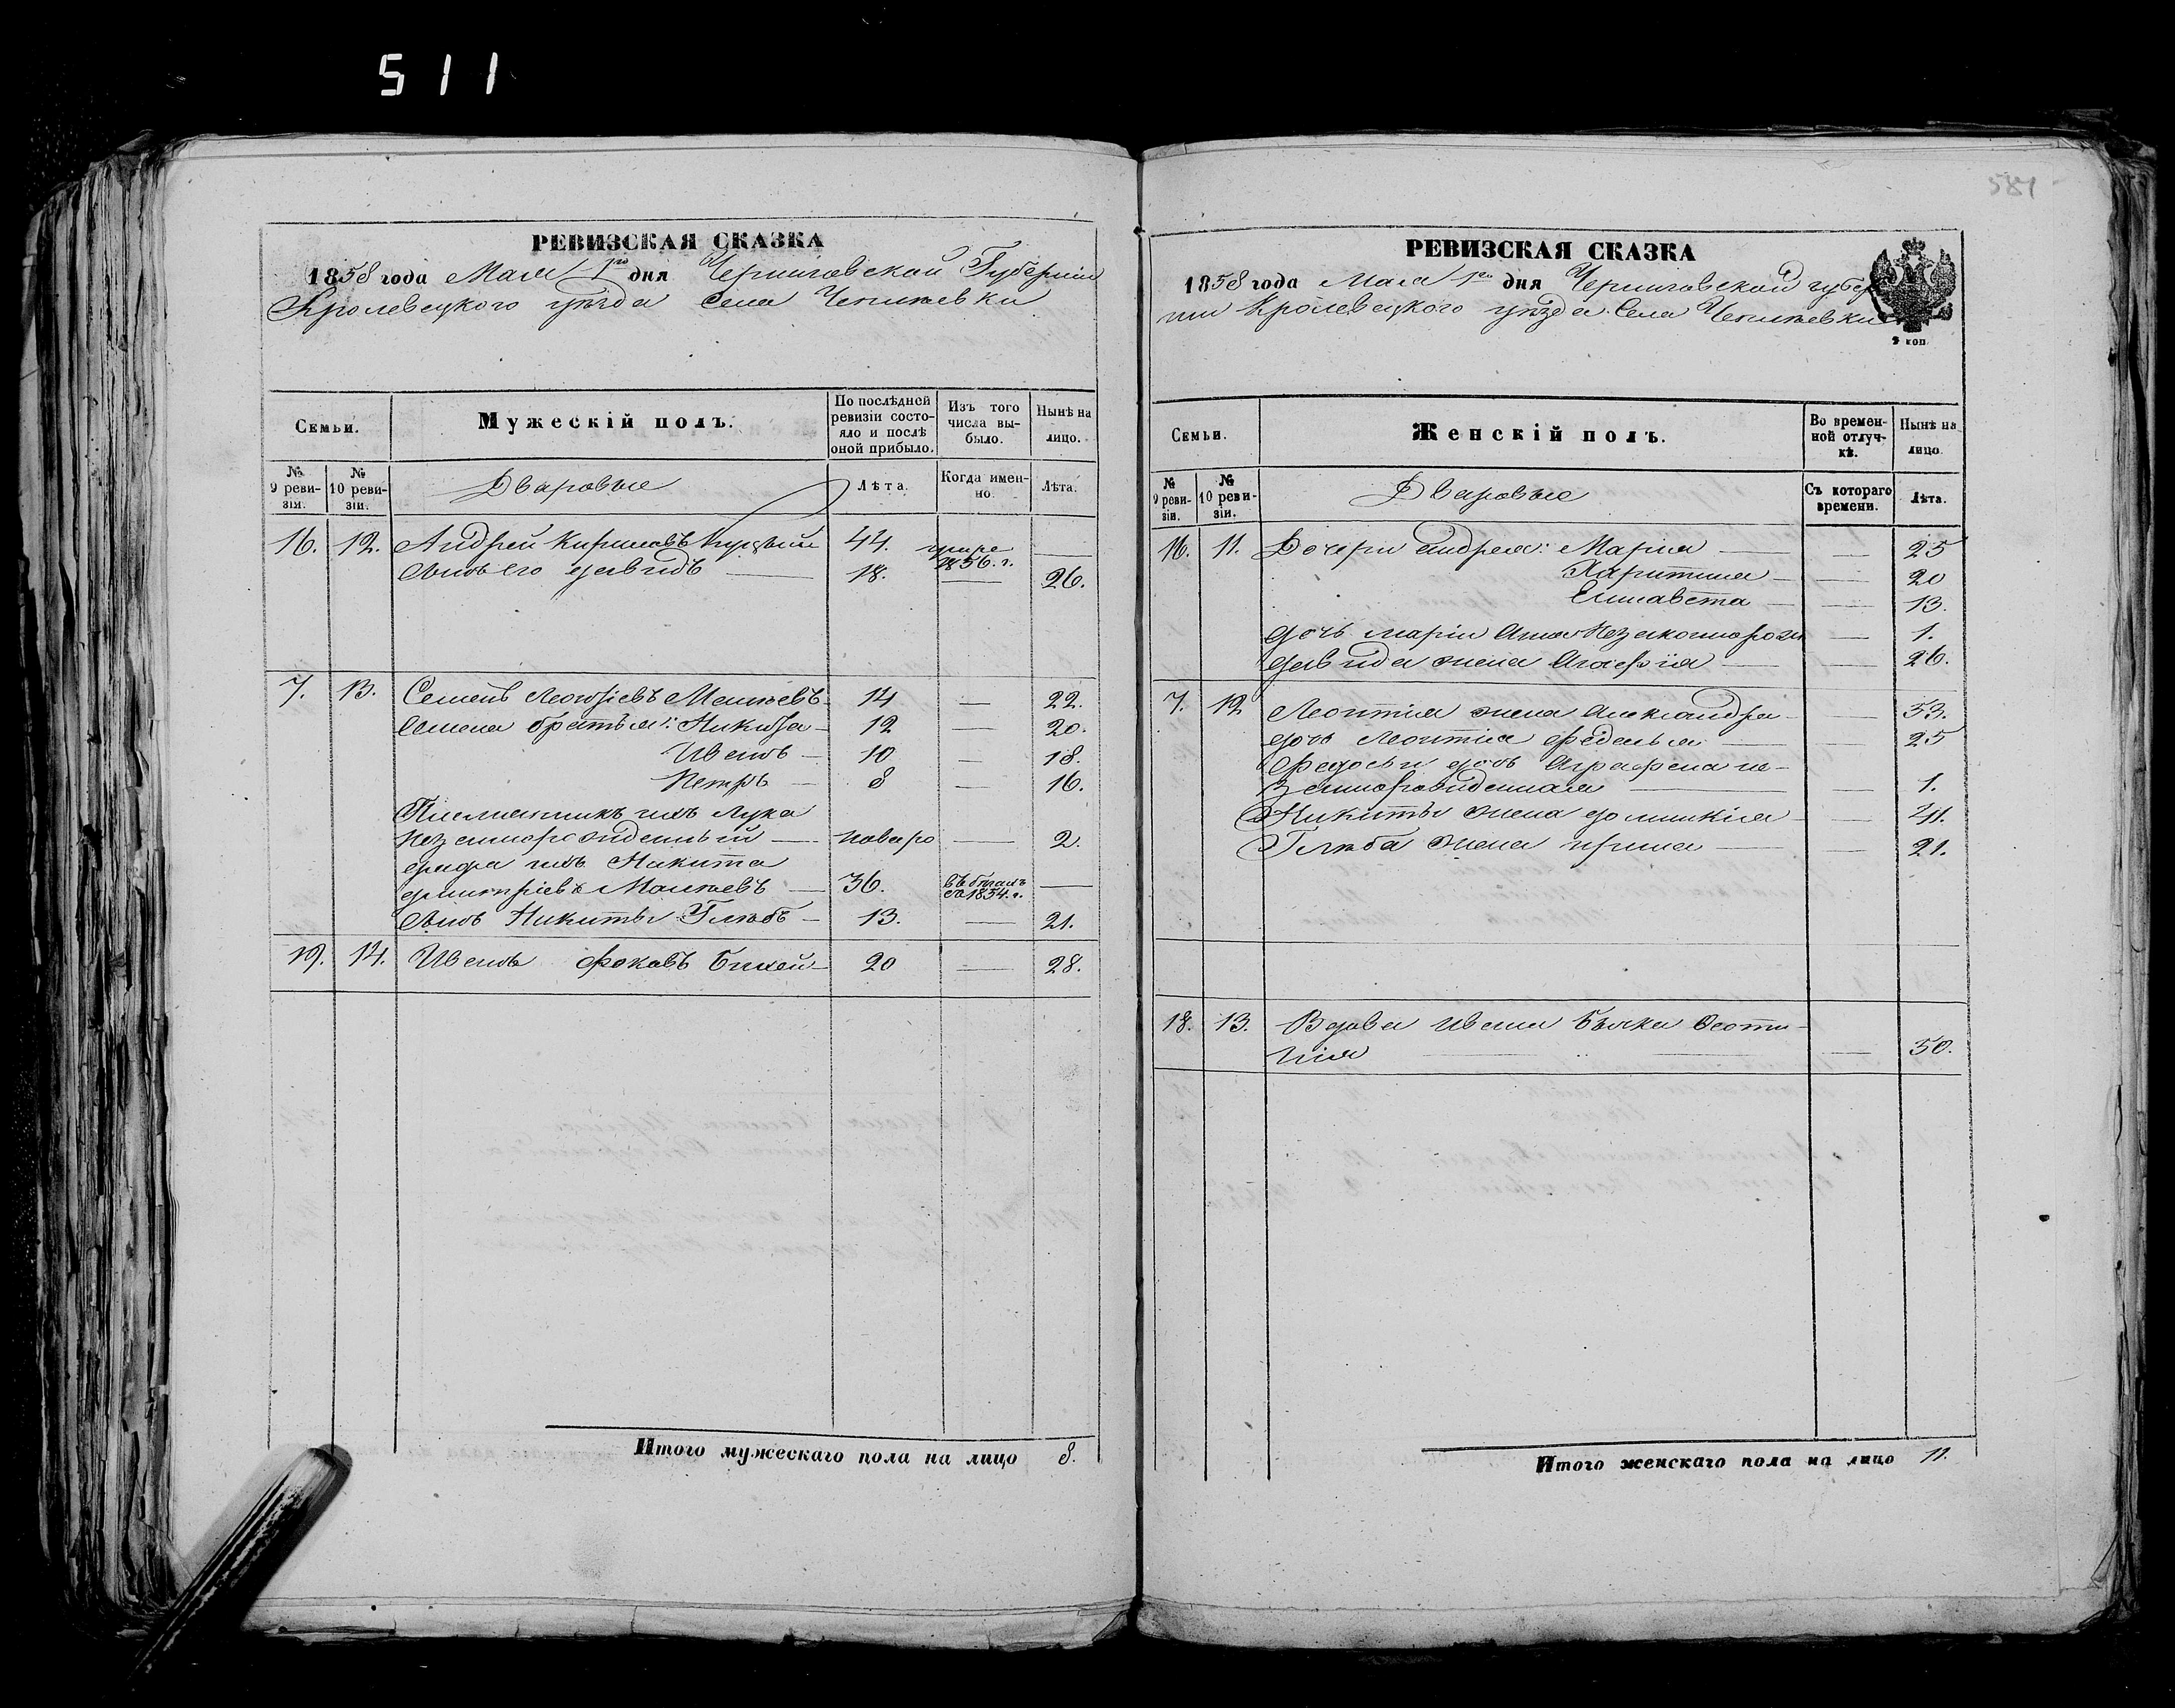 511
РЕВИЗСКАЯ СКАЗКА
1858 года Мая 1го дня Черниговской Губерніи
Кролевецкого уѣзда села Чепліевки
Семьи.
Мужескій полъ.
По послѣдней ревизіи состояло и послѣ оной прибыло.
Изъ того числа выбыло.
Нынѣ на лицо.
№ 9 ревизіи.
№ 10 ревизіи.
Дваровые
Лѣта.
Когда именно.
Лѣта.
16. 12. Андрей Кириловъ 44. умре 1856. г. —
Сынъ его давидъ — 18. — 26.
7. 13. Семенъ Леонтіевъ 14 — 22.
Семена братья: Никифа — 12 — 20.
Иванъ — 10 — 18.
Петръ — 8 — 16.
Племянникъ ихъ Лука
незаннорожденный — новоро — 2.
дядя ихъ Никита
дмитріевъ 36. въ бѣгахъ съ 1854. г. —
Сынъ Никиты Глѣбъ — 13. — 21.
19. 14. Иванъ Фокавъ 20 — 28.
Итого мужескаго пола на лицо 8.
581
РЕВИЗСКАЯ СКАЗКА
1858 года Мая 1го дня Черниговской губер
ніи Кролевецкого уѣзда Села Чепліевки
2 коп.
Семьи.
Женскій полъ.
Во временной отлучкѣ.
Нынѣ на лицо.
№ 9 ревизіи.
№ 10 ревизіи.
Дваровые
Съ котораго времени.
Лѣта.
16. 11. Дочери андрея: Марія — — 25
Харитина — — 20
Елисавета — — 13.
дочь маріи Анна — 1.
давида жена Агафія — — 26.
7. 12 Леонтія жена Александра — — 53.
дочь Леонтія федосья — — 25
Федосьи дочь Аграфена не-
заннорожденная — — 1.
Никиты жена доминікія — — 41.
Глѣба жена ирина — — 21.
18. 13. Вдова ивана Бычка Еоти-
мія — — 50.
Итого женскаго пола на лицо 11.